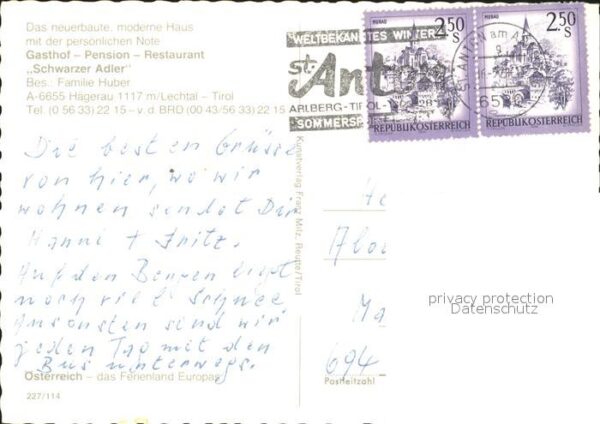 Das neuerbaute, moderne Haus
mit der persönlichen Note
Gasthof – Pension – Restaurant
„Schwarzer Adler"
Bes.: Familie Huber
A-6655 Hägerau 1117 m/Lechtal – Tirol
Tel. (0 56 33) 22 15 – v. d. BRD (00 43/56 33) 22 15
WELTBEKANNTES WINTER
St. Ant
ARLBERG-TIROL
SOMMERSP
MURAU
2.50
S
REPUBLIK ÖSTERREICH
MURAU
2.50
S
REPUBLIK ÖSTERREICH
ST. ANTON am A
6580
Die besten Grüsse
von hier, wo wir
wohnen sendet Dir
Hanni + Fritz.
Auf den Bergen liegt
noch viel Schnee
Ansonsten sind wir
jeden Tag mit den
Bus unterwegs.
Kunstverlag Franz Milz, Reutte/Tirol
He
Alo
Ma
694
Postleitzahl
privacy protection
Datenschutz
Österreich – das Ferienland Europas
227/114